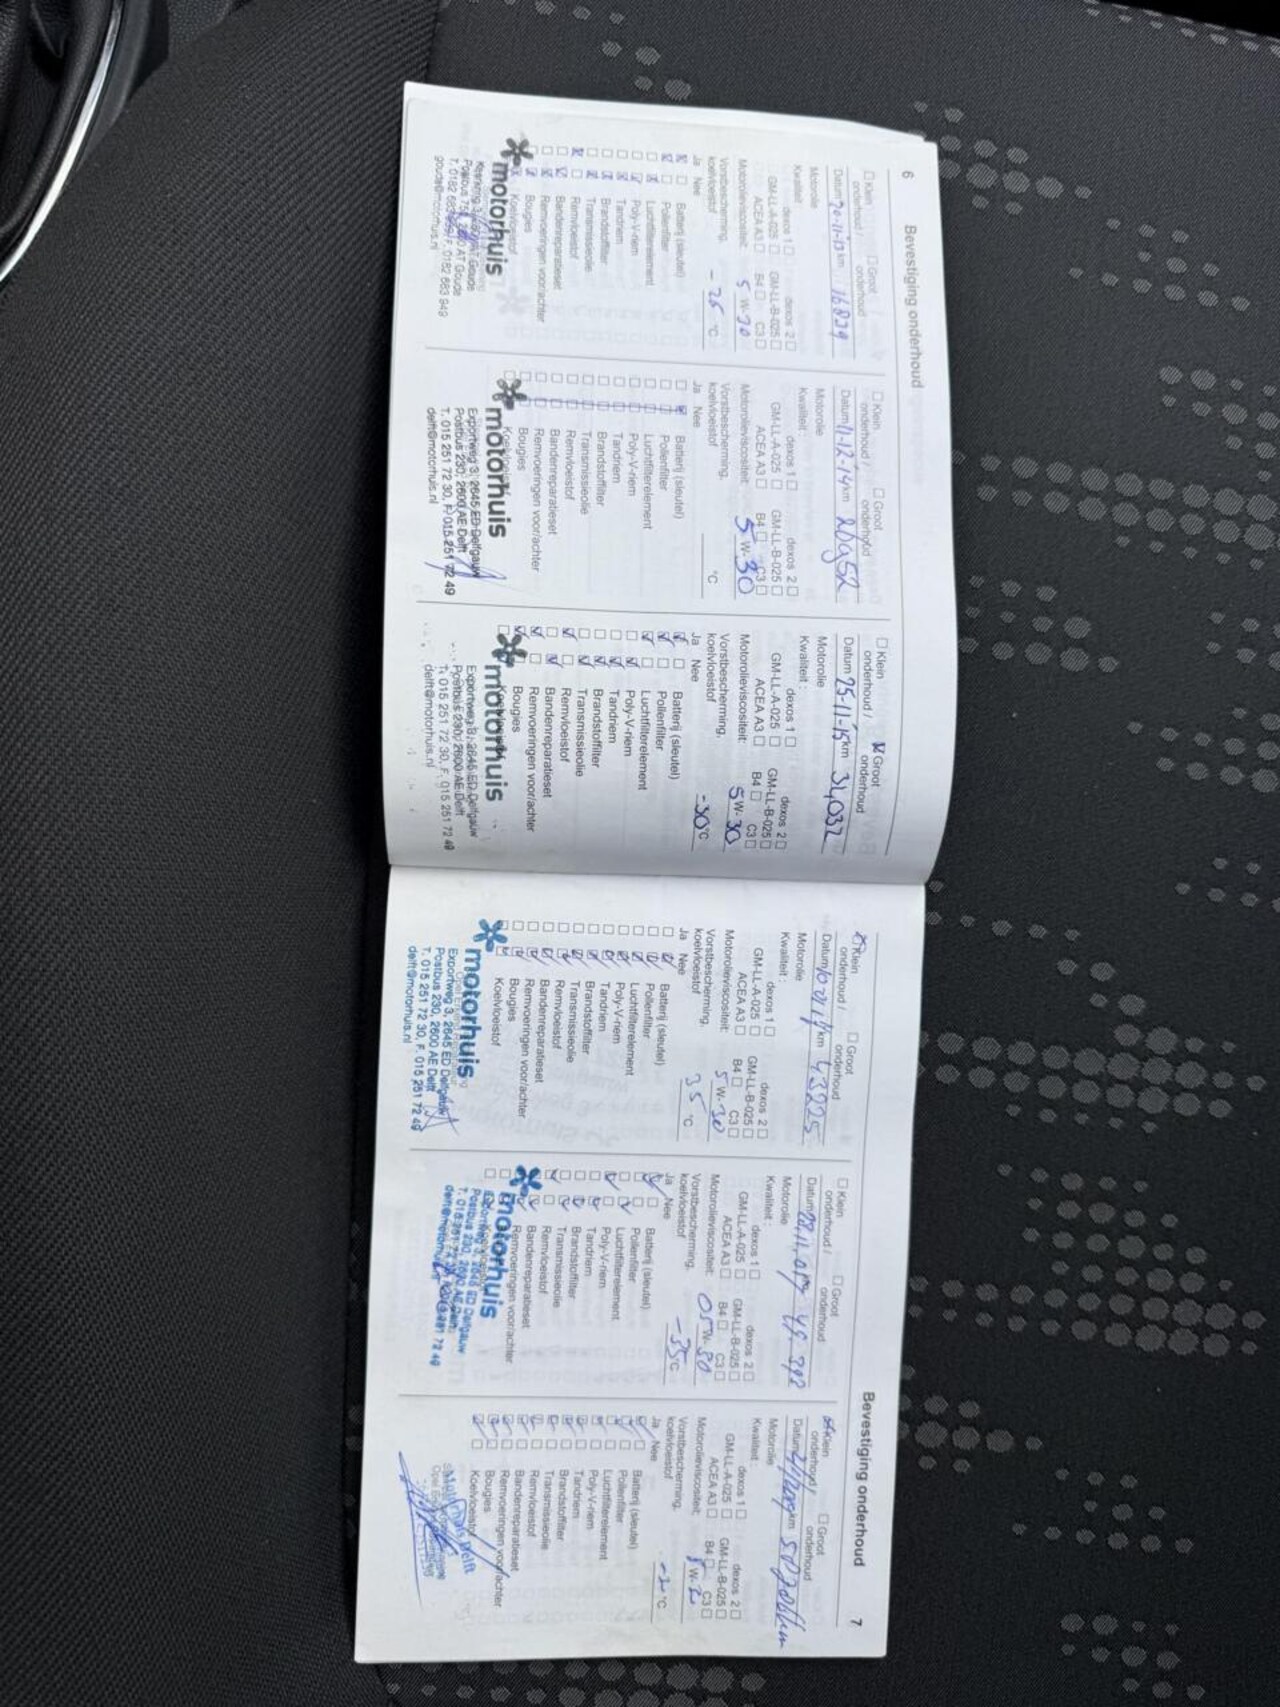 6 Bevestiging onderhoud
☐ Klein onderhoud / ☐ Groot onderhoud
Datum 20-11-13 km 16829
Motorolie
Kwaliteit : dexos 1 ☐ dexos 2 ☐
GM-LL-A-025 ☐ GM-LL-B-025 ☐
ACEA A3 ☐ B4 ☐ C3 ☐
Motorolieviscositeit: 5 W-30
Vorstbescherming,
koelvloeistof - 26 °C
Ja Nee
Batterij (sleutel)
Pollenfilter
Luchtfilterelement
Poly-V-riem
Tandriem
Brandstoffilter
Transmissieolie
Remvloeistof
Bandenreparatieset
Remvoeringen voor/achter
Bougies
Koelvloeistof
motorhuis
gouda@motorhuis.nl
☐ Klein onderhoud / ☐ Groot onderhoud
Datum 11-12-14 km 26952
Motorolie
Kwaliteit : dexos 1 ☐ dexos 2 ☐
GM-LL-A-025 ☐ GM-LL-B-025 ☐
ACEA A3 ☐ B4 ☐ C3 ☐
Motorolieviscositeit: 5 W-30
Vorstbescherming,
koelvloeistof °C
Ja Nee
Batterij (sleutel)
Pollenfilter
Luchtfilterelement
Poly-V-riem
Tandriem
Brandstoffilter
Transmissieolie
Remvloeistof
Bandenreparatieset
Remvoeringen voor/achter
Bougies
motorhuis
Exportweg 3, 2645 ED Delfgauw
Postbus 230, 2600 AE Delft
T. 015 251 72 30, F. 015 251 72 49
delft@motorhuis.nl
☐ Klein onderhoud / ☑ Groot onderhoud
Datum 25-11-15 km 34032
Motorolie
Kwaliteit : dexos 1 ☐ dexos 2 ☐
GM-LL-A-025 ☐ GM-LL-B-025 ☐
ACEA A3 ☐ B4 ☐ C3 ☐
Motorolieviscositeit: 5 W-30
Vorstbescherming,
koelvloeistof -30 °C
Ja Nee
Batterij (sleutel)
Pollenfilter
Luchtfilterelement
Poly-V-riem
Tandriem
Brandstoffilter
Transmissieolie
Remvloeistof
Bandenreparatieset
Remvoeringen voor/achter
Bougies
motorhuis
Exportweg 3, 2645 ED Delfgauw
Postbus 230, 2600 AE Delft
T. 015 251 72 30, F. 015 251 72 49
delft@motorhuis.nl
Bevestiging onderhoud 7
☑ Klein onderhoud / ☐ Groot onderhoud
Datum km 43225
Motorolie
Kwaliteit : dexos 1 ☐ dexos 2 ☐
GM-LL-A-025 ☐ GM-LL-B-025 ☐
ACEA A3 ☐ B4 ☐ C3 ☐
Motorolieviscositeit: 5 W-30
Vorstbescherming,
koelvloeistof 35 °C
Ja Nee
Batterij (sleutel)
Pollenfilter
Luchtfilterelement
Poly-V-riem
Tandriem
Brandstoffilter
Transmissieolie
Remvloeistof
Bandenreparatieset
Remvoeringen voor/achter
Bougies
Koelvloeistof
motorhuis
Exportweg 3, 2645 ED Delfgauw
Postbus 230, 2600 AE Delft
T. 015 251 72 30, F. 015 251 72 49
delft@motorhuis.nl
☐ Klein onderhoud / ☐ Groot onderhoud
Datum km 49.392
Motorolie
Kwaliteit : dexos 1 ☐ dexos 2 ☐
GM-LL-A-025 ☐ GM-LL-B-025 ☐
ACEA A3 ☐ B4 ☐ C3 ☐
Motorolieviscositeit: 05 W-30
Vorstbescherming,
koelvloeistof -35 °C
Ja Nee
Batterij (sleutel)
Pollenfilter
Luchtfilterelement
Poly-V-riem
Tandriem
Brandstoffilter
Transmissieolie
Remvloeistof
Bandenreparatieset
Remvoeringen voor/achter
motorhuis
☑ Klein onderhoud / ☐ Groot onderhoud
Datum km
Motorolie
Kwaliteit : dexos 1 ☐ dexos 2 ☐
GM-LL-A-025 ☐ GM-LL-B-025 ☐
ACEA A3 ☐ B4 ☐ C3 ☐
Motorolieviscositeit: W-
Vorstbescherming,
koelvloeistof °C
Ja Nee
Batterij (sleutel)
Pollenfilter
Luchtfilterelement
Poly-V-riem
Tandriem
Brandstoffilter
Transmissieolie
Remvloeistof
Bandenreparatieset
Remvoeringen voor/achter
Bougies
Koelvloeistof